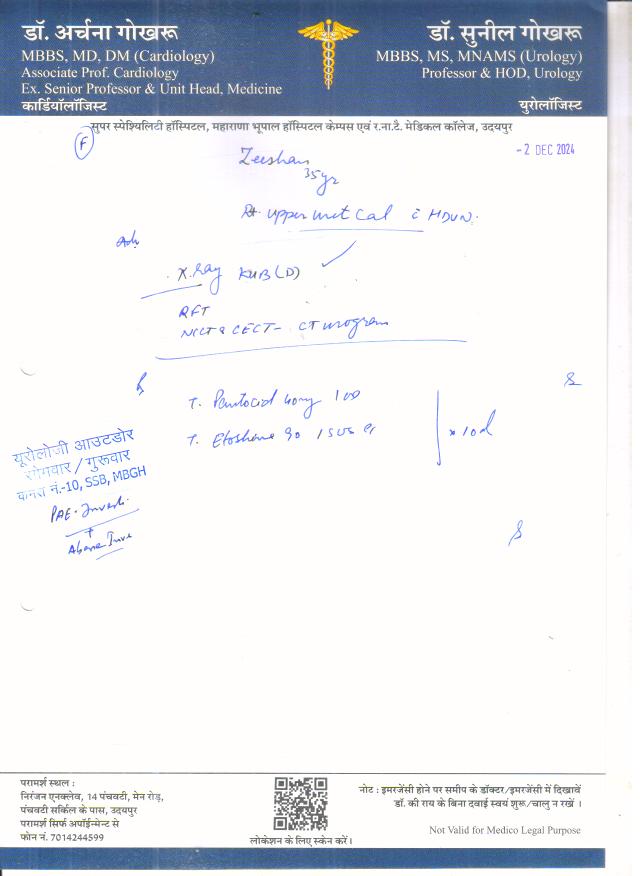 डॉ. अर्चना गोखरू
MBBS, MD, DM (Cardiology)
Associate Prof. Cardiology
Ex. Senior Professor & Unit Head, Medicine
कार्डियॉलॉजिस्ट
डॉ. सुनील गोखरू
MBBS, MS, MNAMS (Urology)
Professor & HOD, Urology
यूरोलॉजिस्ट
सुपर स्पेशियलिटी हॉस्पिटल, महाराणा भूपाल हॉस्पिटल केम्पस एवं र.ना.टै. मेडिकल कॉलेज, उदयपुर
F
- 2 DEC 2024
Zeeshan
35yr
Rt upper uret Cal c HDUN.
Adv
X.Ray KUB (D)
RFT
NCCT & CECT - CT urogram
T. Pantocid 40mg 1 OD
T. Etoshine 90 1 SOS
x 10d
यूरोलोजी आउटडोर
सोमवार / गुरूवार
कमरा नं.-10, SSB, MBGH
PAE-Investi.
+
Above Inve
परामर्श स्थल :
निरंजन एनक्लेव, 14 पंचवटी, मेन रोड़,
पंचवटी सर्किल के पास, उदयपुर
परामर्श सिर्फ अपॉईन्मेन्ट से
फोन नं. 7014244599
लोकेशन के लिए स्केन करें।
नोट : इमरजेंसी होने पर समीप के डॉक्टर/इमरजेंसी में दिखावें
डॉ. की राय के बिना दवाई स्वयं शुरू/चालु न रखें ।
Not Valid for Medico Legal Purpose